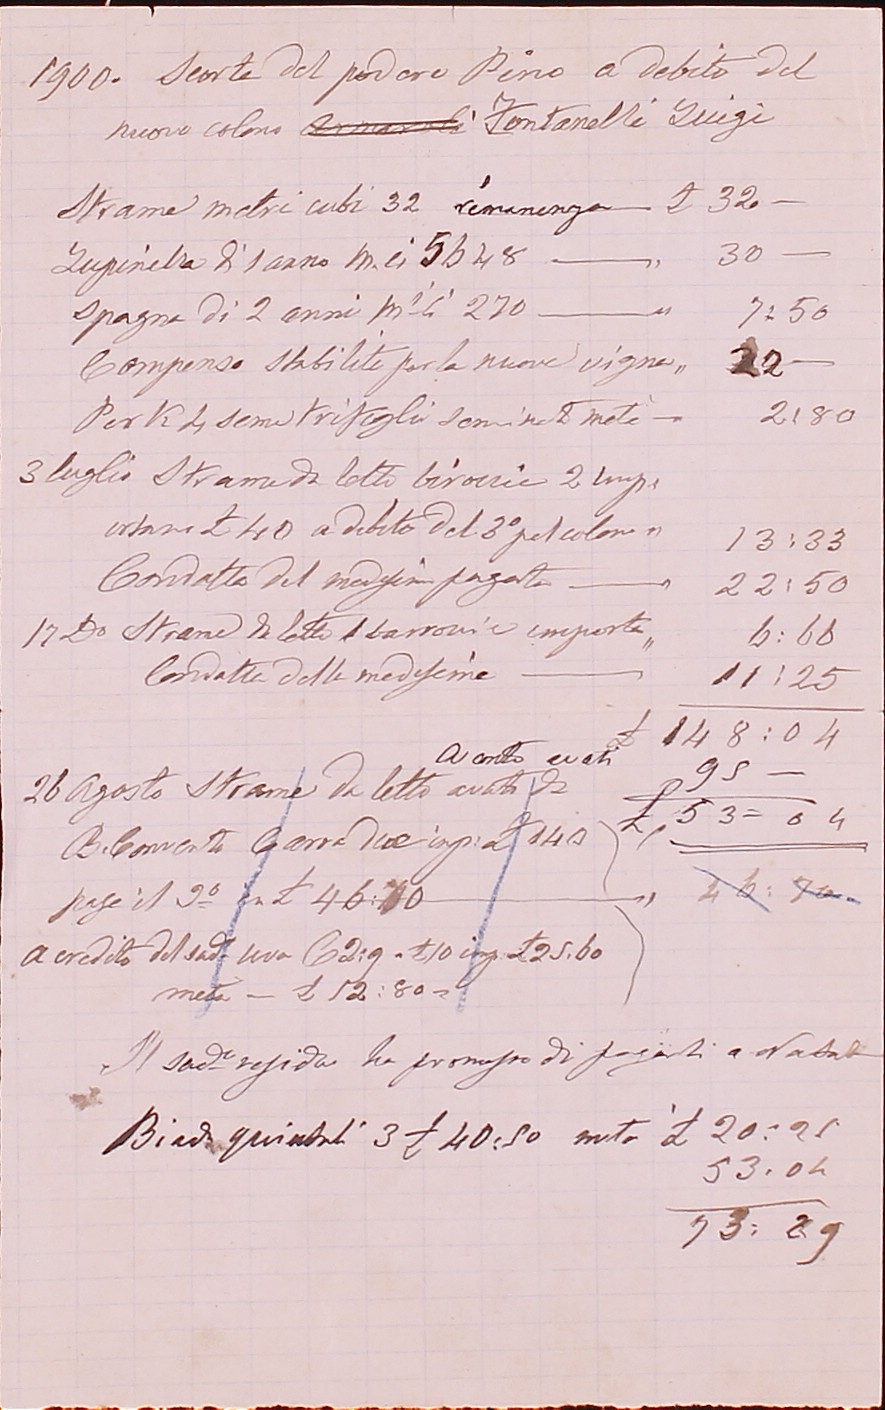 1900. Scorte del podere Pino a debito del
nuovo colono Fontanelli Luigi
Strame metri cubi 32 rimanenza £ 32 —
Lupinella di 1 anno M. ci 5648 — „ 30 —
Spagna di 2 anni M. ci 270 — „ 7:50
Compenso stabilito per la nuova vigna „ 22 —
Per K 4 seme trifoglio seminato metà — 2:80
3 luglio Strame da letto birocci 2 imp.
£ 40 a debito del 3º pel colono „ 13:33
Condotta del medesimo pagata — „ 22:50
17 Dº Strame da letto 1 barroccio importa „ 6:66
Condotta delle medesime — 11:25
£ 148:04
A conto avati 95 —
£ 53=04
26 Agosto Strame da letto avati da
B. Conventi Carra due imp: £ 140
pago il 3º in £ 46:70 — „ 46:70
A credito del sudº uva C 2:9 a £ 10 imp. £ 25.60
metà — £ 12:80
Il sudº residuo ha promesso di pagarli a Natale
Biada quintali 3 £ 40:50 metà £ 20:25
53.04
73:29